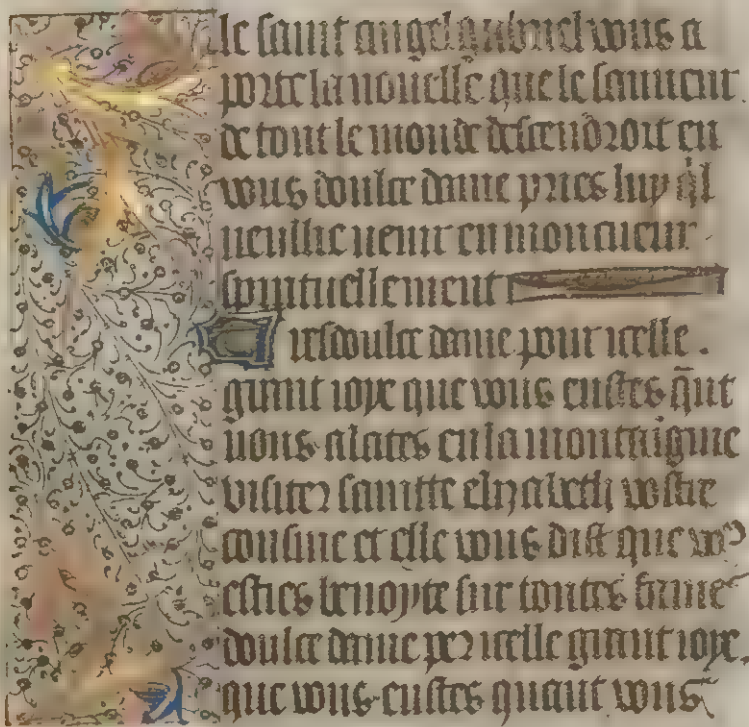 le saint angel gabriel vous a
porte la nouvelle que le sauueur
de tout le monde descendroit en
vous doulce dame pries luy q̃l
ueuille uenir en mon cueur
spirituellement
Tresdoulce dame pour icelle.
grant ioye que vous eustes q̃nt
uous alates en la montaigne
visiter saintte elyzabeth vostre
cousine et elle vous dist que vo⁹
esties benoyte sur toutes fame
doulce dame per icelle grant ioye.
que vous eustes quant vous